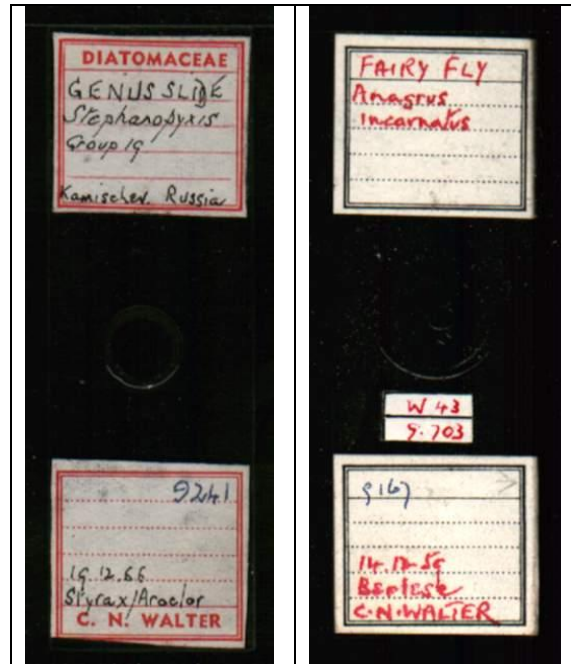 DIATOMACEAE
GENUS SLIDE
Stephanopyxis
Group 19
Kamischev. Russia
9241
19.12.66
Styrax/Aroclor
C. N. WALTER
FAIRY FLY
Anagrus
Incarnatus
W 43
9.703
9167
14.12.59
Berlese
C.N.WALTER